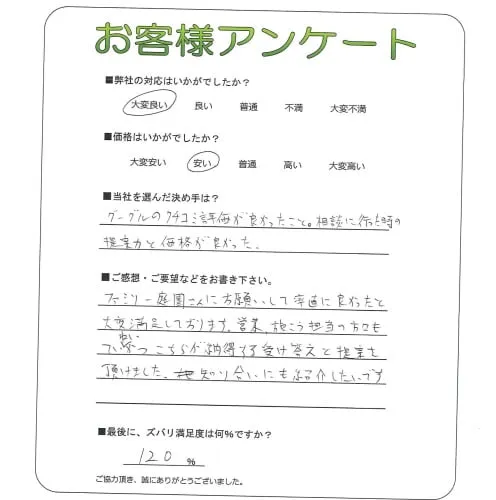 お客様アンケート
■弊社の対応はいかがでしたか？
大変良い 良い 普通 不満 大変不満
■価格はいかがでしたか？
大変安い 安い 普通 高い 大変高い
■当社を選んだ決め手は？
グーグルの クチコミ評価が良かったこと。相談に行った時の
提案力と価格が良かった。
■ご感想・ご要望などをお書き下さい。
ファミリー庭園さんにお願いして率直に良かったと
大変満足しております。営業、施こう担当の方々も
こちらが納得する受け答えと提案を
頂けました。知り合いにも紹介したいです
■最後に、ズバリ満足度は何％ですか？
120 %
ご協力頂き、誠にありがとうございました。